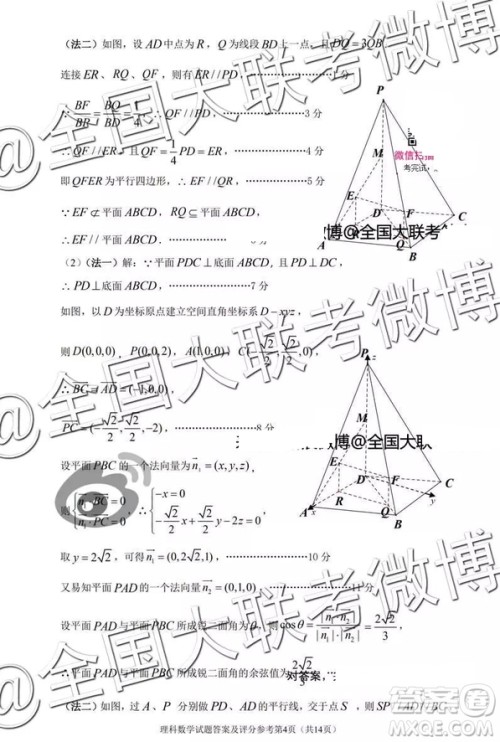 （法二）如图，设AD中点为R，Q为线段BD上一点，且DQ=3QB.
连接ER、RQ、QF，则有ER//PD，…………1分
∵BF/BP=BQ/BD=1/4，…………3分
∴QF//PD，且QF=1/4PD=ER，…………4分
即QFER为平行四边形，∴EF//QR，…………5分
∵EF⊄平面ABCD，RQ⊆平面ABCD，
∴EF//平面ABCD．…………6分
（2）（法一）解：∵平面PDC⊥底面ABCD，且PD⊥DC，
∴PD⊥底面ABCD，…………7分
如图，以D为坐标原点建立空间直角坐标系D-xyz，
则D(0,0,0)，P(0,0,2)，A(1,0,0)，C(-√2/2,√2/2,0)，
∴BC=AD=(-1,0,0)，
PC=(-√2/2,√2/2,-2)，…………8分
设平面PBC的一个法向量为n₁=(x,y,z)，
则{n₁·BC=0 n₁·PC=0，∴{-x=0 -√2/2x+√2/2y-2z=0
取y=2√2，可得n₁=(0,2√2,1)，…………10分
又易知平面PAD的一个法向量n₂=(0,1,0)，…………11分
设平面PAD与平面PBC所成锐二面角为θ，则cosθ=|n₁·n₂|/|n₁|·|n₂|=2√2/3，
∴平面PAD与平面PBC所成锐二面角的余弦值为2√2/3
对答案，
（法二）如图，过A、P分别做PD、AD的平行线，交于点S，则SP//AD//BC，
理科数学试题答案及评分参考第4页（共14页）
P
M
E
D
F
C
A
Q
B
微信扫一扫
考完试，
博@全国大联考
P
z
M
E
D
F
C
A
x
R
Q
B
y
博@全国大联
@全国大联考微博
@全国大联考微博
@全国大联考微博
答案圈